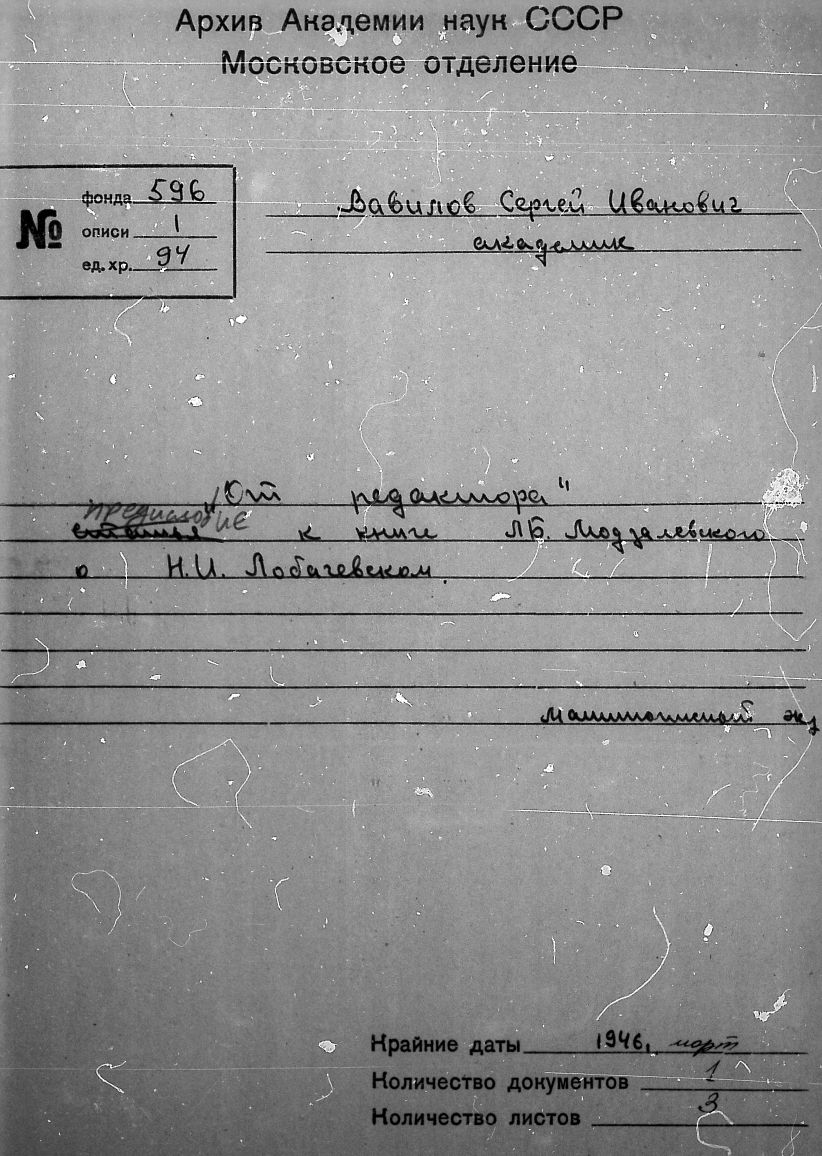 Архив Академии наук СССР
Московское отделение
№
фонда 596
описи 1
ед. хр. 94
Вавилов Сергей Иванович
академик
"От редактора"
предисловие
статья к книге Л.Б. Модзалевского
о Н.И. Лобачевском.
Машинописный экз
Крайние даты 1946, март
Количество документов 1
Количество листов 3